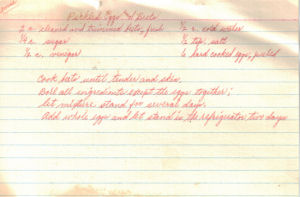 Pickled Eggs & Beets
2 c. cleaned and trimmed bets, fresh ½ c. cold water
¼ c. sugar ½ tsp. salt
½ c. vinegar 6 hard cooked eggs, peeled
Cook bets until tender and skin.
Boil all ingredients except the eggs together;
let mixture stand for several days.
Add whole eggs and let stand in the refrigerator two days